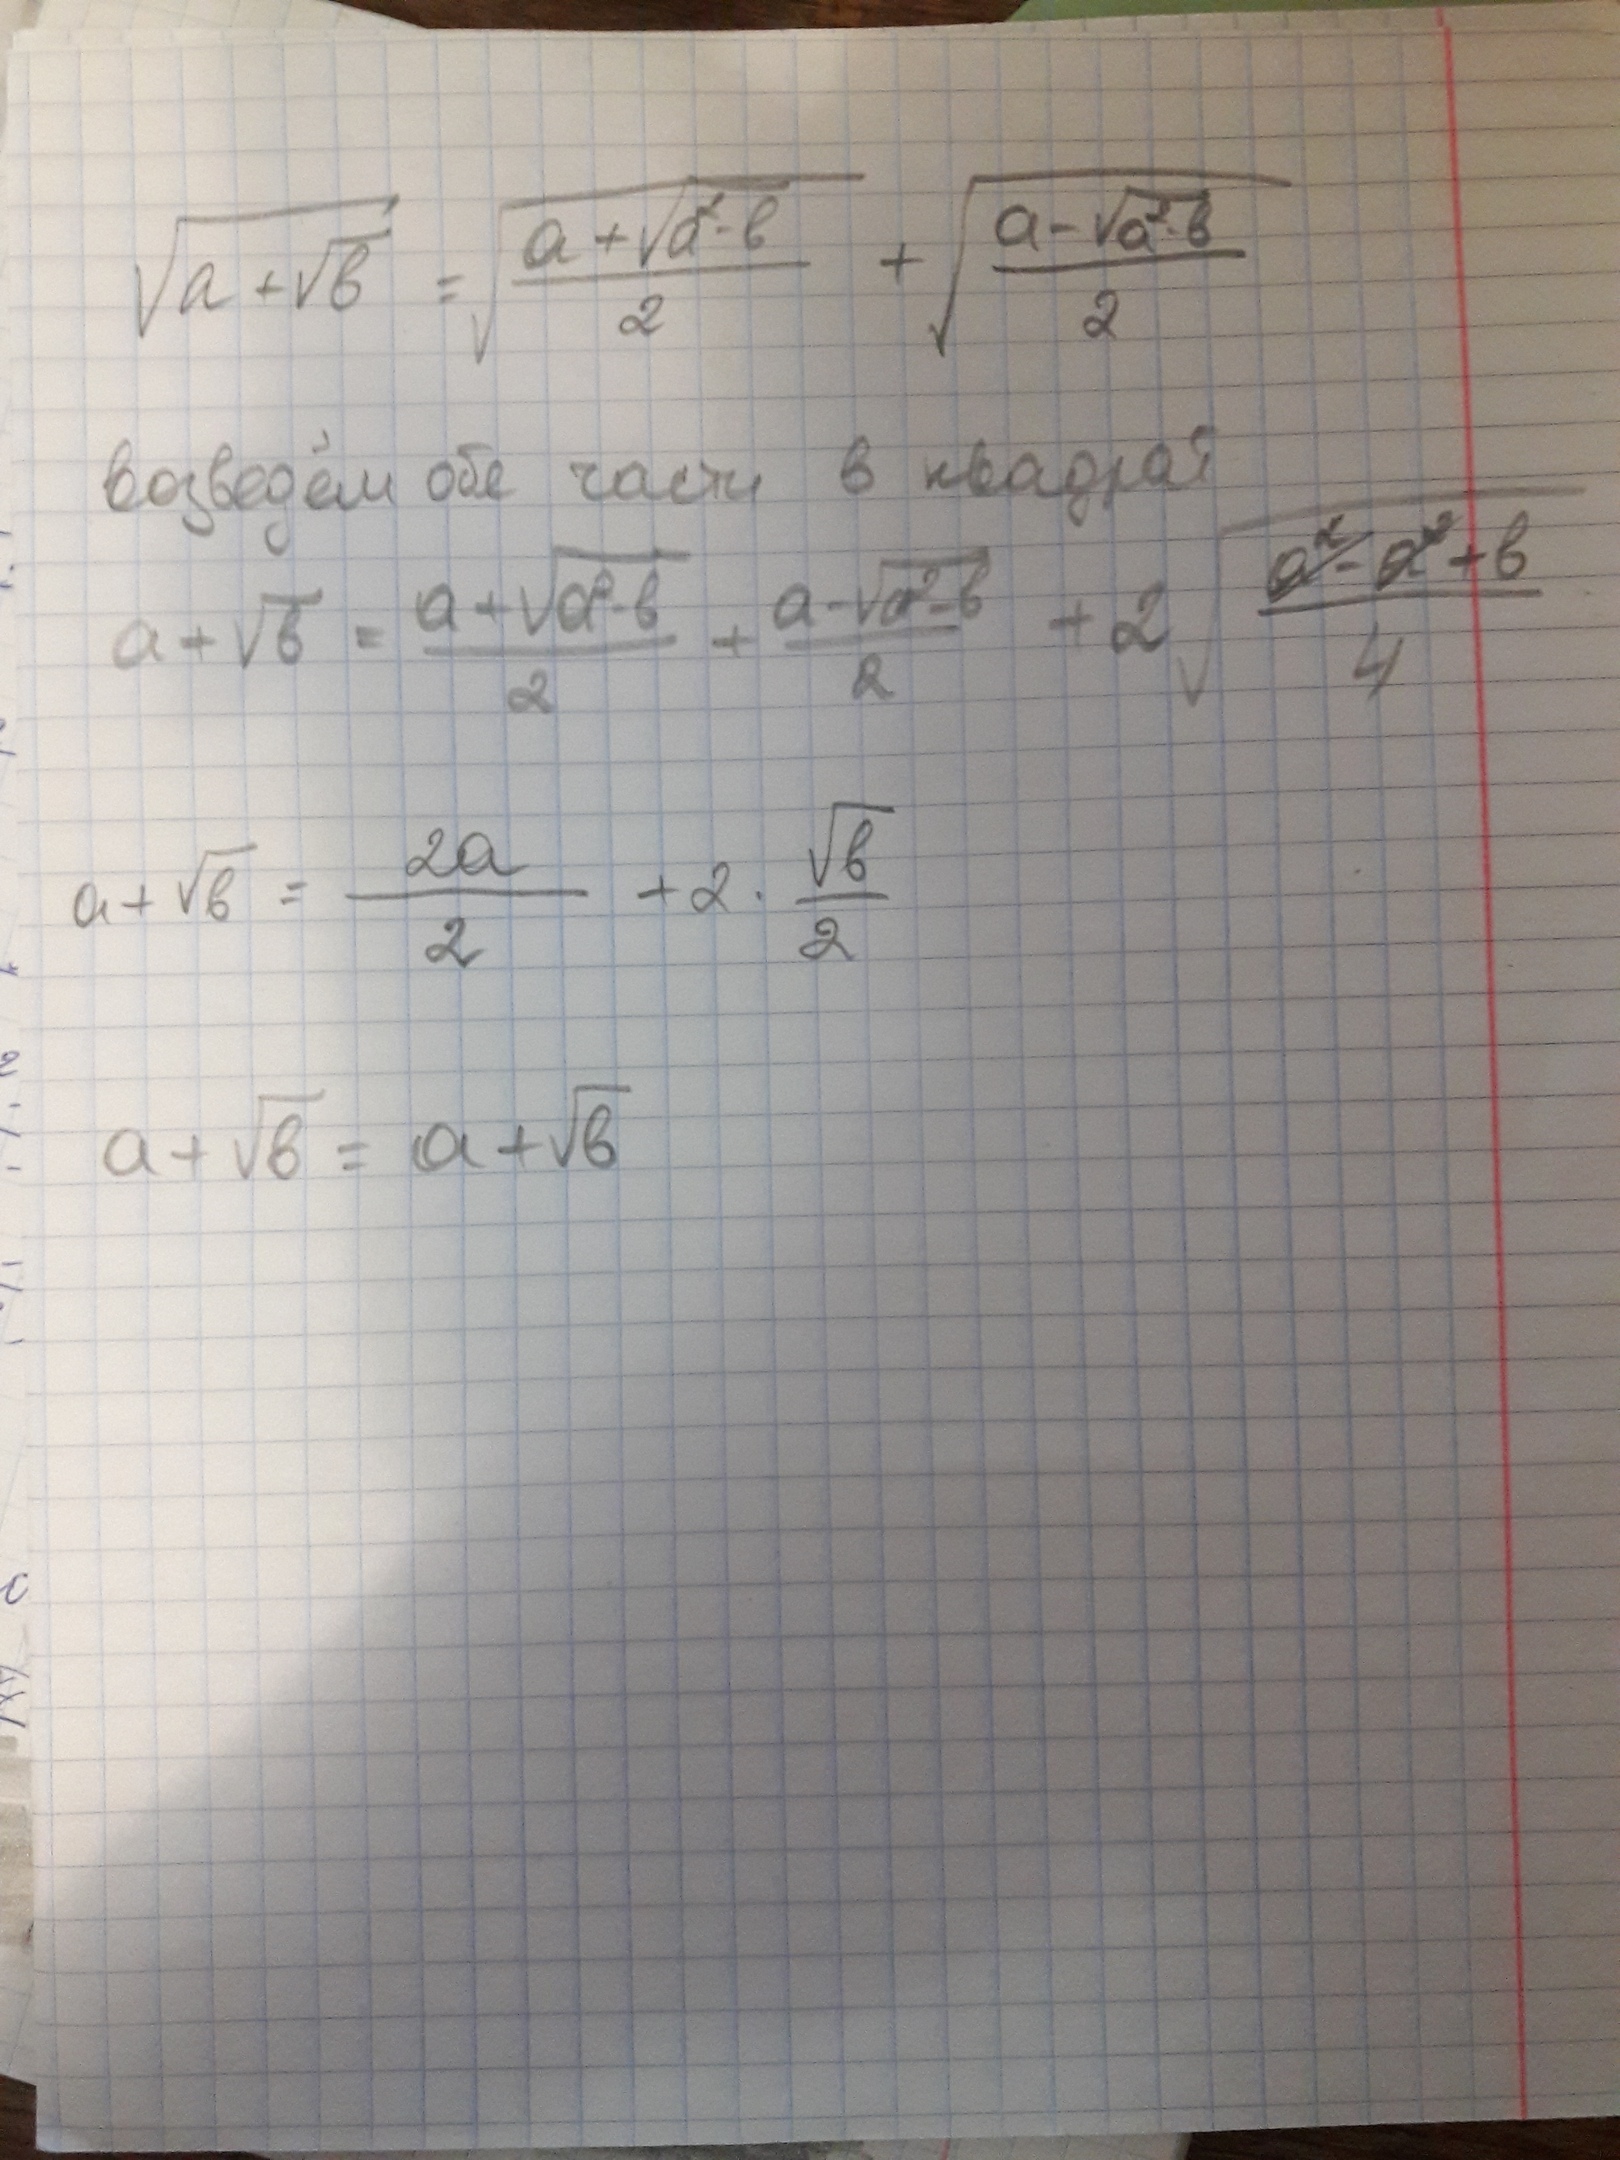 √(a+√в) = √((a+√(a²-в))/2) + √((a-√(a²-в))/2)
возведём обе части в квадрат
a+√в = (a+√(a²-в))/2 + (a-√(a²-в))/2 + 2√((a²-a²+в)/4)
a+√в = 2a/2 + 2·√в/2
a+√в = a+√в